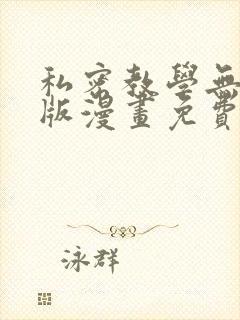 私密教學無
版漫畫免費
泳群